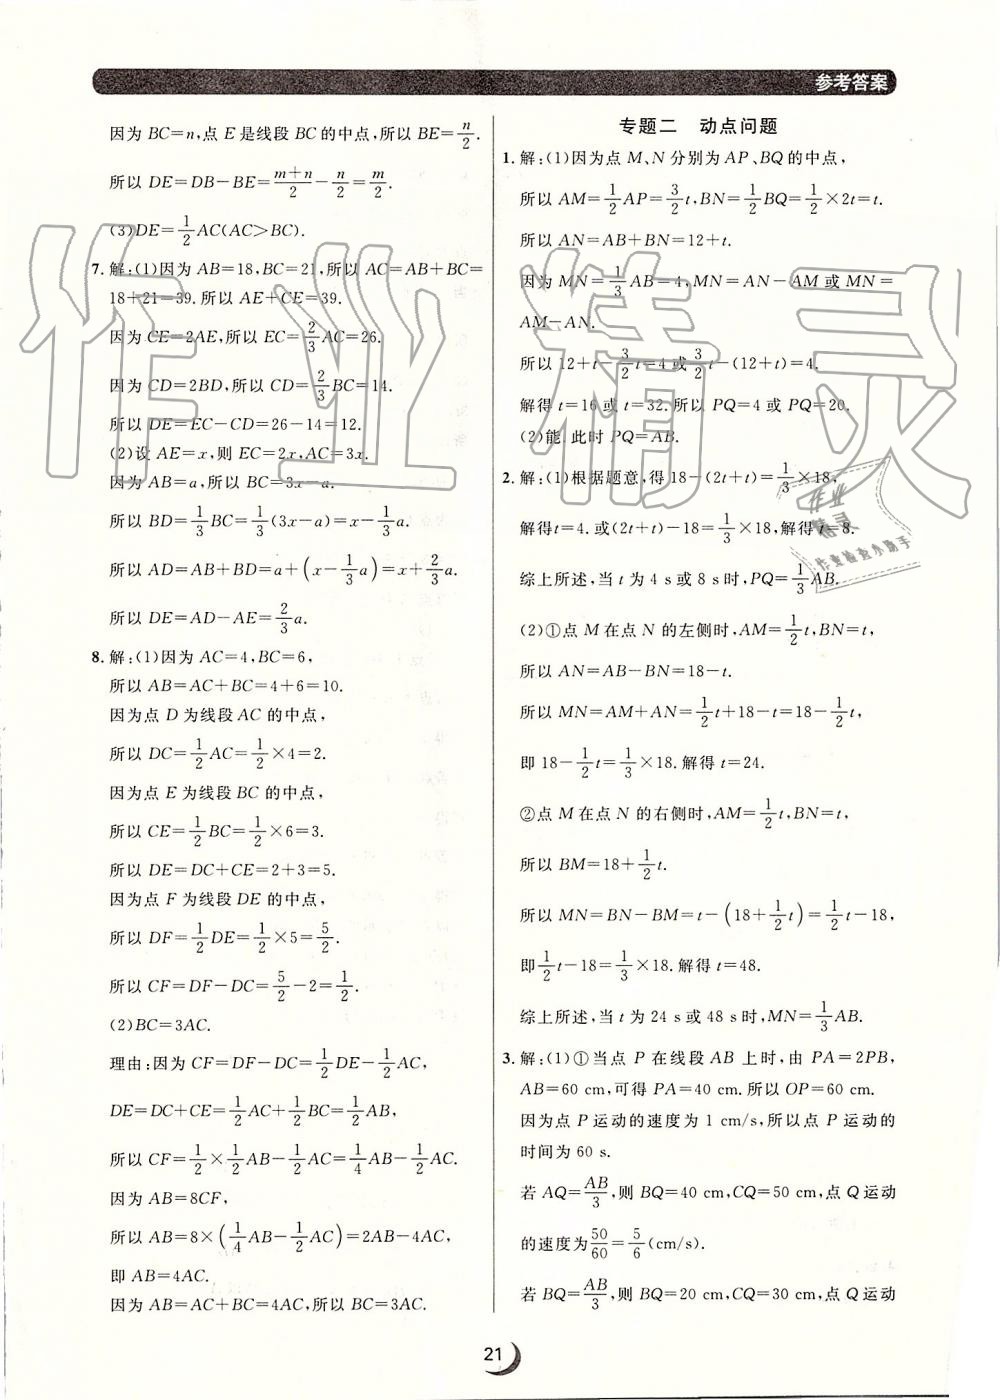 参考答案
因为 BC=n,点 E 是线段 BC 的中点,所以 BE=n/2.
所以 DE=DB-BE=(m+n)/2-n/2=m/2.
(3)DE=1/2AC(AC>BC).
7. 解:(1)因为 AB=18,BC=21,所以 AC=AB+BC=
18+21=39.所以 AE+CE=39.
因为 CE=2AE,所以 EC=2/3AC=26.
因为 CD=2BD,所以 CD=2/3BC=14.
所以 DE=EC-CD=26-14=12.
(2)设 AE=x,则 EC=2x,AC=3x.
因为 AB=a,所以 BC=3x-a.
所以 BD=1/3BC=1/3(3x-a)=x-1/3a.
所以 AD=AB+BD=a+(x-1/3a)=x+2/3a.
所以 DE=AD-AE=2/3a.
8. 解:(1)因为 AC=4,BC=6,
所以 AB=AC+BC=4+6=10.
因为点 D 为线段 AC 的中点,
所以 DC=1/2AC=1/2×4=2.
因为点 E 为线段 BC 的中点,
所以 CE=1/2BC=1/2×6=3.
所以 DE=DC+CE=2+3=5.
因为点 F 为线段 DE 的中点,
所以 DF=1/2DE=1/2×5=5/2.
所以 CF=DF-DC=5/2-2=1/2.
(2)BC=3AC.
理由:因为 CF=DF-DC=1/2DE-1/2AC,
DE=DC+CE=1/2AC+1/2BC=1/2AB,
所以 CF=1/2×1/2AB-1/2AC=1/4AB-1/2AC.
因为 AB=8CF,
所以 AB=8×(1/4AB-1/2AC)=2AB-4AC,
即 AB=4AC.
因为 AB=AC+BC=4AC,所以 BC=3AC.
专题二 动点问题
1. 解:(1)因为点 M、N 分别为 AP、BQ 的中点,
所以 AM=1/2AP=3/2t,BN=1/2BQ=1/2×2t=t.
所以 AN=AB+BN=12+t.
因为 MN=1/3AB=4,MN=AN-AM 或 MN=
AM-AN.
所以 12+t-3/2t=4 或 3/2t-(12+t)=4.
解得 t=16 或 t=32.所以 PQ=4 或 PQ=20.
(2)能.此时 PQ=AB.
2. 解:(1)根据题意,得 18-(2t+t)=1/3×18,
解得t=4.或(2t+t)-18=1/3×18,解得 t=8.
综上所述,当 t 为 4 s 或 8 s 时,PQ=1/3AB.
(2)①点 M 在点 N 的左侧时,AM=1/2t,BN=t,
所以 AN=AB-BN=18-t.
所以 MN=AM+AN=1/2t+18-t=18-1/2t,
即 18-1/2t=1/3×18.解得 t=24.
②点 M 在点 N 的右侧时,AM=1/2t,BN=t,
所以 BM=18+1/2t.
所以 MN=BN-BM=t-(18+1/2t)=1/2t-18,
即1/2t-18=1/3×18.解得 t=48.
综上所述,当 t 为 24 s 或 48 s 时,MN=1/3AB.
3. 解:(1)①当点 P 在线段 AB 上时,由 PA=2PB,
AB=60 cm,可得 PA=40 cm.所以 OP=60 cm.
因为点 P 运动的速度为 1 cm/s,所以点 P 运动的
时间为 60 s.
若 AQ=AB/3,则 BQ=40 cm,CQ=50 cm,点 Q 运动
的速度为50/60=5/6(cm/s).
若 BQ=AB/3,则 BQ=20 cm,CQ=30 cm,点 Q 运动
21
作业精灵
作业检查小助手